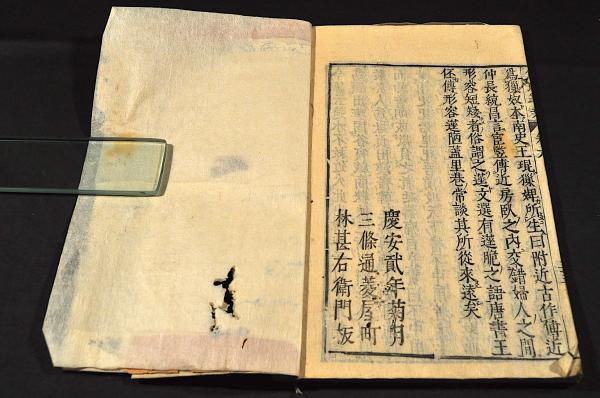 為獵奴本南史王琨獵婢所生曰附近古作傅近
仲長統昌言宦豎傅近房臥之内交錯婦人之間
形容短矮者俗謂之蓌文選有蓌脆之語唐書王
伾傳形容蓌陋蓋里巷常談其所從來遠矣
慶安貳年菊月
三條通菱屋町
林甚右衛門板